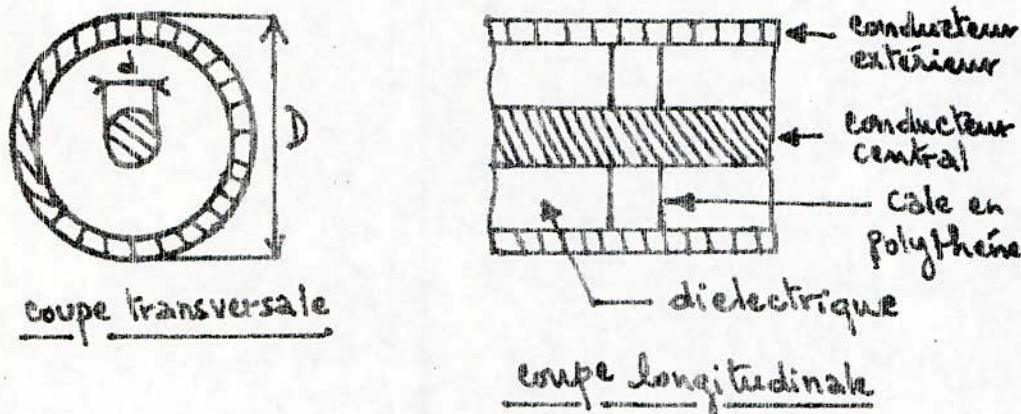 d
D
coupe transversale
conducteur
extérieur
conducteur
central
cale en
polythène
diélectrique
coupe longitudinale